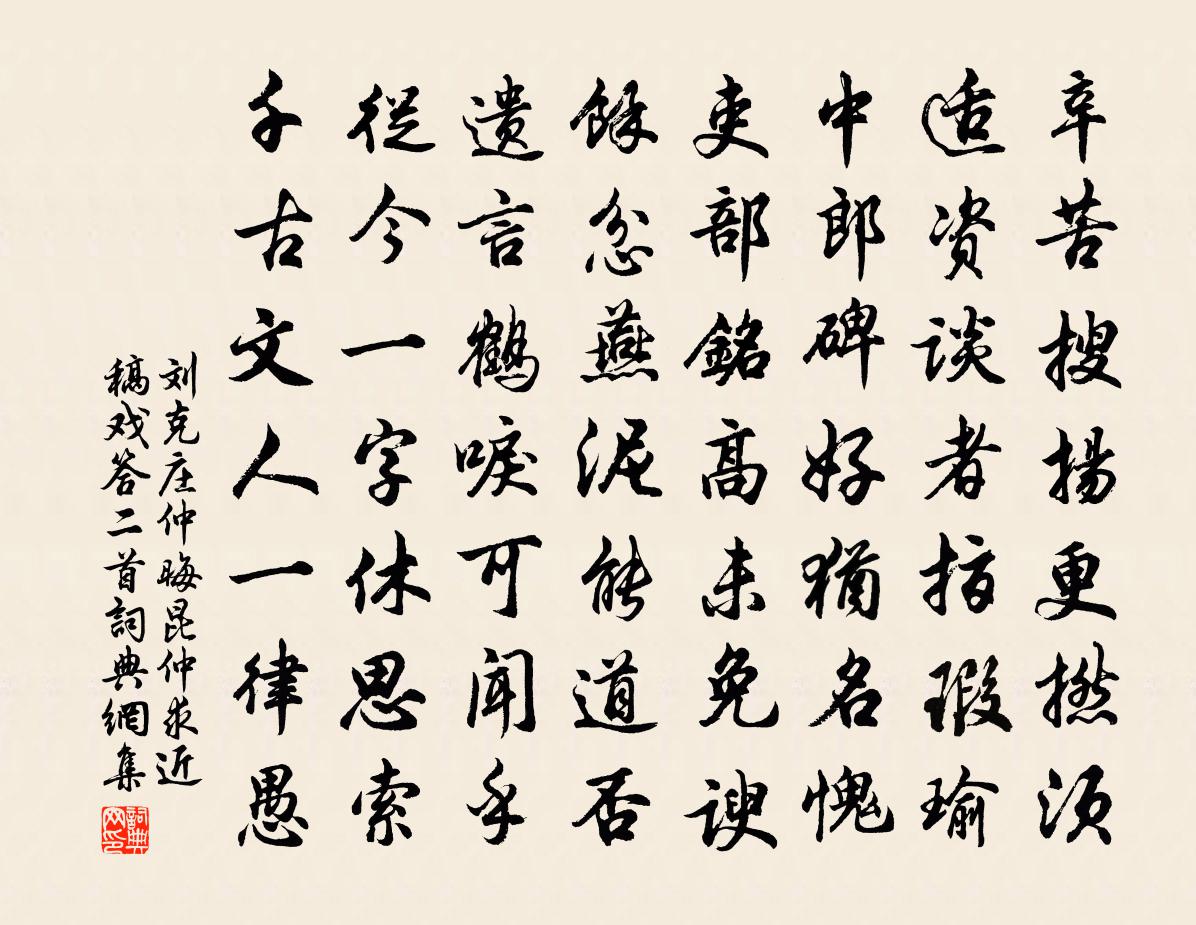 辛苦搜揚更撚须
适资谈者指瑕瑜
中郎碑好猶名愧
吏部銘高未免谀
餘忿燕泥能道否
遗言鶴唳可闻乎
從今一字休思索
千古文人一律愚
刘克庄仲晦昆仲求近
稿戏答二首詞典網集
詞典网印